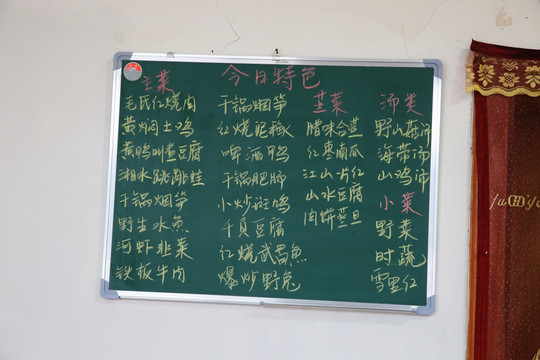 今日特色
主菜
毛氏红烧肉
黄焖土鸡
黄鸭叫煮豆腐
湘水跳跳蛙
干锅烟笋
野生水鱼
河虾韭菜
铁板牛肉
干锅烟笋
红烧泥鳅
啤酒鸭
干锅肥肠
小炒斑鸠
千页豆腐
红烧武昌鱼
爆炒野兔
蒸菜
腊味合蒸
红枣南瓜
江山一片红
山水豆腐
肉饼蒸旦
汤类
野山菇汤
海带汤
山鸡汤
小菜
野菜
时蔬
雪里红